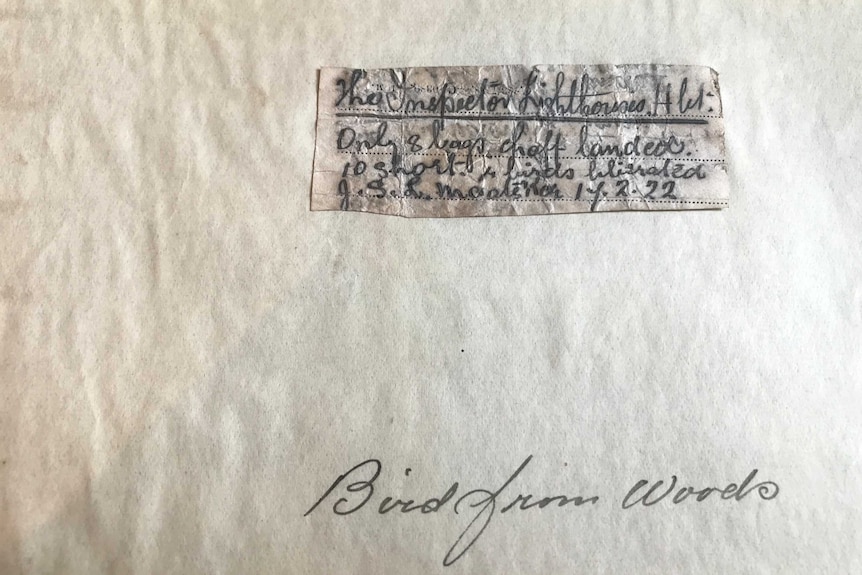 The Inspector Lighthouses Hbt.
Only 8 bags chaff landed.
10 short 4 birds liberated
J.S.R. 17.2.22
Bird from Woods